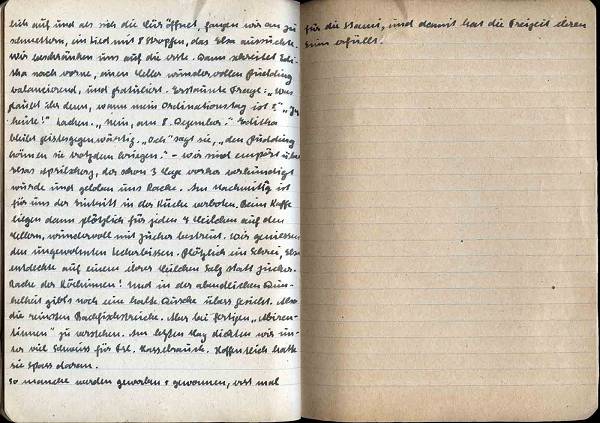 sich auf und als sich die Tür öffnet, fangen wir an zu
schmettern, ein Lied mit 8 Strophen, das Elsa aussuchte.
Wir beschränken uns auf die erste. Dann schreitet Edi-
tha nach vorne, einen Teller wundervollen Pudding
balancierend, und gratuliert. Erstaunte Frage: „Was
glaubt ihr denn, wann mein Ordinationstag ist?" „Ja
heute!" Lachen. „Nein, am 8. Dezember." Editha
bleibt geistesgegenwärtig. „Och" sagt sie, „den Pudding
können sie trotzdem kriegen." - Wir sind empört über
Elsas Aprilscherz, der schon 3 Tage vorher verkündigt
wurde und geloben uns Rache. Am Nachmittag ist
für uns der Eintritt in der Küche verboten. Beim Kaffee
liegen dann plötzlich für jeden 4 Teilchen auf den
Tellern, wundervoll mit Zucker bestreut. Wir geniessen
den ungewohnten Leckerbissen. Plötzlich ein Schrei, Elsa
entdeckte auf einem ihrer Teilchen Salz statt Zucker.
Rache der Köchinnen! Und in der abendlichen Dun-
kelheit gibts noch eine kalte Dusche übers Gesicht. Also
die reinsten Backfischstreiche. Aber bei fertigen „Abiturien-
tinnen" zu verstehen. Am letzten Tag dichten wir un-
ser viel Schmuss für Frl. Hasselbrauck. Hoffentlich hatte
sie Spass daran.
So manche werden geworben + gewonnen, erst mal
für die und damit hat die Freizeit ihren
Sinn erfüllt.